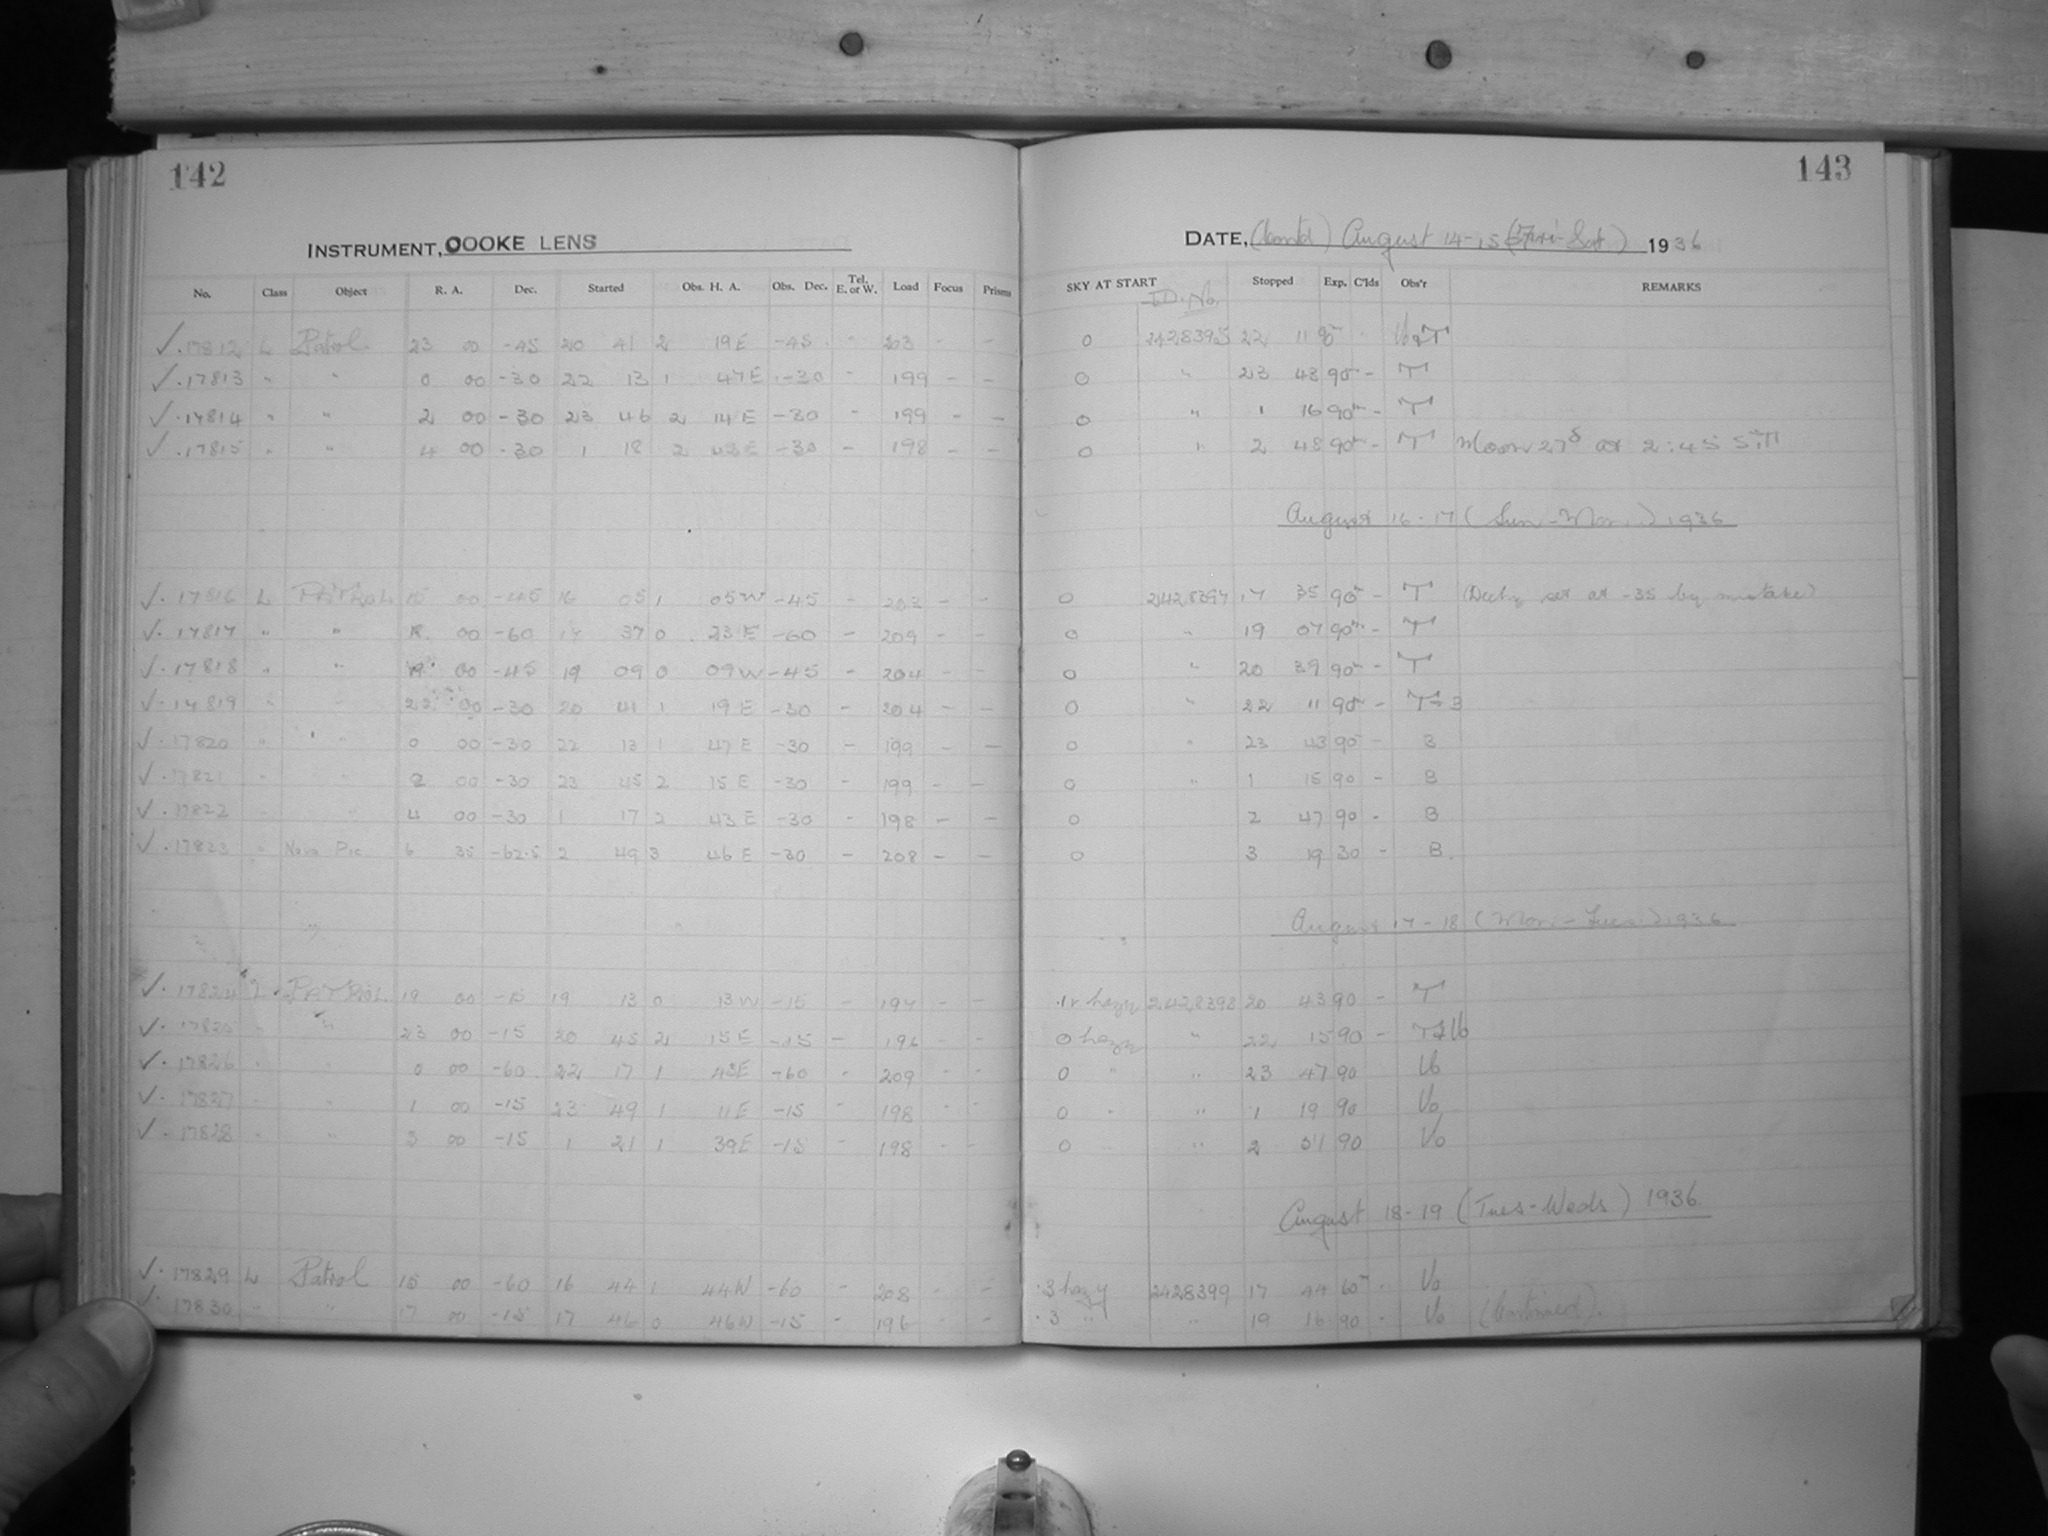 142
143
INSTRUMENT, COOKE LENS
DATE, (Contd) August 14-15 (Fri-Sat) 1936
No. Class Object R. A. Dec. Started Obs. H. A. Obs. Dec. Tel. E. or W. Load Focus Prisms SKY AT START I.D. No. Stopped Exp. C'lds Obs'r REMARKS
✓ .17812 L Patrol 23 00 -45 20 41 2 19 E -45 - 203 - - 0 2428395 22 11
✓ .17813 " " 0 00 -30 22 13 1 47 E -30 - 199 - - 0 " 23 43 90m - T
✓ .17814 " " 2 00 -30 23 46 2 14 E -30 - 199 - - 0 " 1 16 90m - T
✓ .17815 " " 4 00 -30 1 18 2 43 E -30 - 198 - - 0 " 2 48 90m - T Moon at 2:45 S.T
August 16-17 (Sun-Mon.) 1936
✓ .17816 L PATROL 15 00 -45 16 05 1 05 W -45 - 203 - - 0 2428397 17 35 90m - T (Decl. set at -35 by mistake)
✓ .17817 " " 00 -60 17 37 0 23 E -60 - 209 - - 0 " 19 07 90m - T
✓ .17818 " " 19 00 -45 19 09 0 09 W -45 - 204 - - 0 " 20 39 90m - T
✓ .17819 " " 22 00 -30 20 41 1 19 E -30 - 204 - - 0 " 22 11 90m - T+B
✓ .17820 " " 0 00 -30 22 13 1 47 E -30 - 199 - - 0 " 23 43 90m - B
✓ .17821 " " 2 00 -30 23 45 2 15 E -30 - 199 - - 0 " 1 15 90 - B
✓ .17822 " " 4 00 -30 1 17 2 43 E -30 - 198 - - 0 2 47 90 - B
✓ .17823 " Nova Pic 6 35 -62.5 2 49 3 46 E -30 - 208 - - 0 3 19 30 - B.
August 17-18 (Mon-Tues) 1936
✓ .17824 L PATROL 19 00 -15 19 13 0 13 W -15 - 197 - - hazy 2428398 20 43 90 - T
✓ .17825 " " 23 00 -15 20 45 2 15 E -15 - 196 - - 0 hazy " 22 15 90 - T+Vo
✓ .17826 " " 0 00 -60 22 17 1 43 E -60 - 209 - - 0 " " 23 47 90 Vo
✓ .17827 " " 1 00 -15 23 49 1 11 E -15 - 198 - - 0 " " 1 19 90 Vo
✓ .17828 " " 3 00 -15 1 21 1 39 E -15 - 198 - - 0 " " 2 51 90 Vo
August 18-19 (Tues-Weds) 1936.
✓ .17829 L Patrol 15 00 -60 16 44 1 44 W -60 - 208 - - .3 hazy 2428399 17 44 60m - Vo
✓ .17830 " " 17 00 -15 17 46 0 46 W -15 - 196 - - .3 " " 19 16 90 - Vo (Continued).